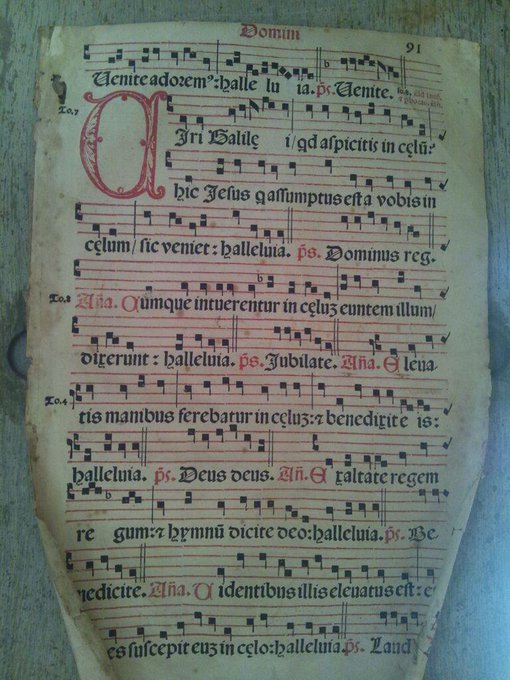 Domini
91
Uenite adorem⁹: halle lu ia. p̄s. Uenite.
To. 7
Uiri Galilę i/ qd aspicitis in cęlū?
hic Jesus q assumptus est a vobis in
cęlum/ sic veniet: halleluia. p̄s. Dominus reg.
To. 8
Aña. Cumque intuerentur in cęluz euntem illum/
dixerunt: halleluia. p̄s. Jubilate. Aña. Eleua
To. 4
tis manibus ferebatur in cęluz: ⁊ benedixit e is:
halleluia. p̄s. Deus deus. Añ. Exaltate regem
re gum: ⁊ hymnū dicite deo: halleluia. p̄s. Be
nedicite. Aña. Uidentibus illis eleuatus est: e
es suscepit euz in cęlo: halleluia. p̄s. Laud